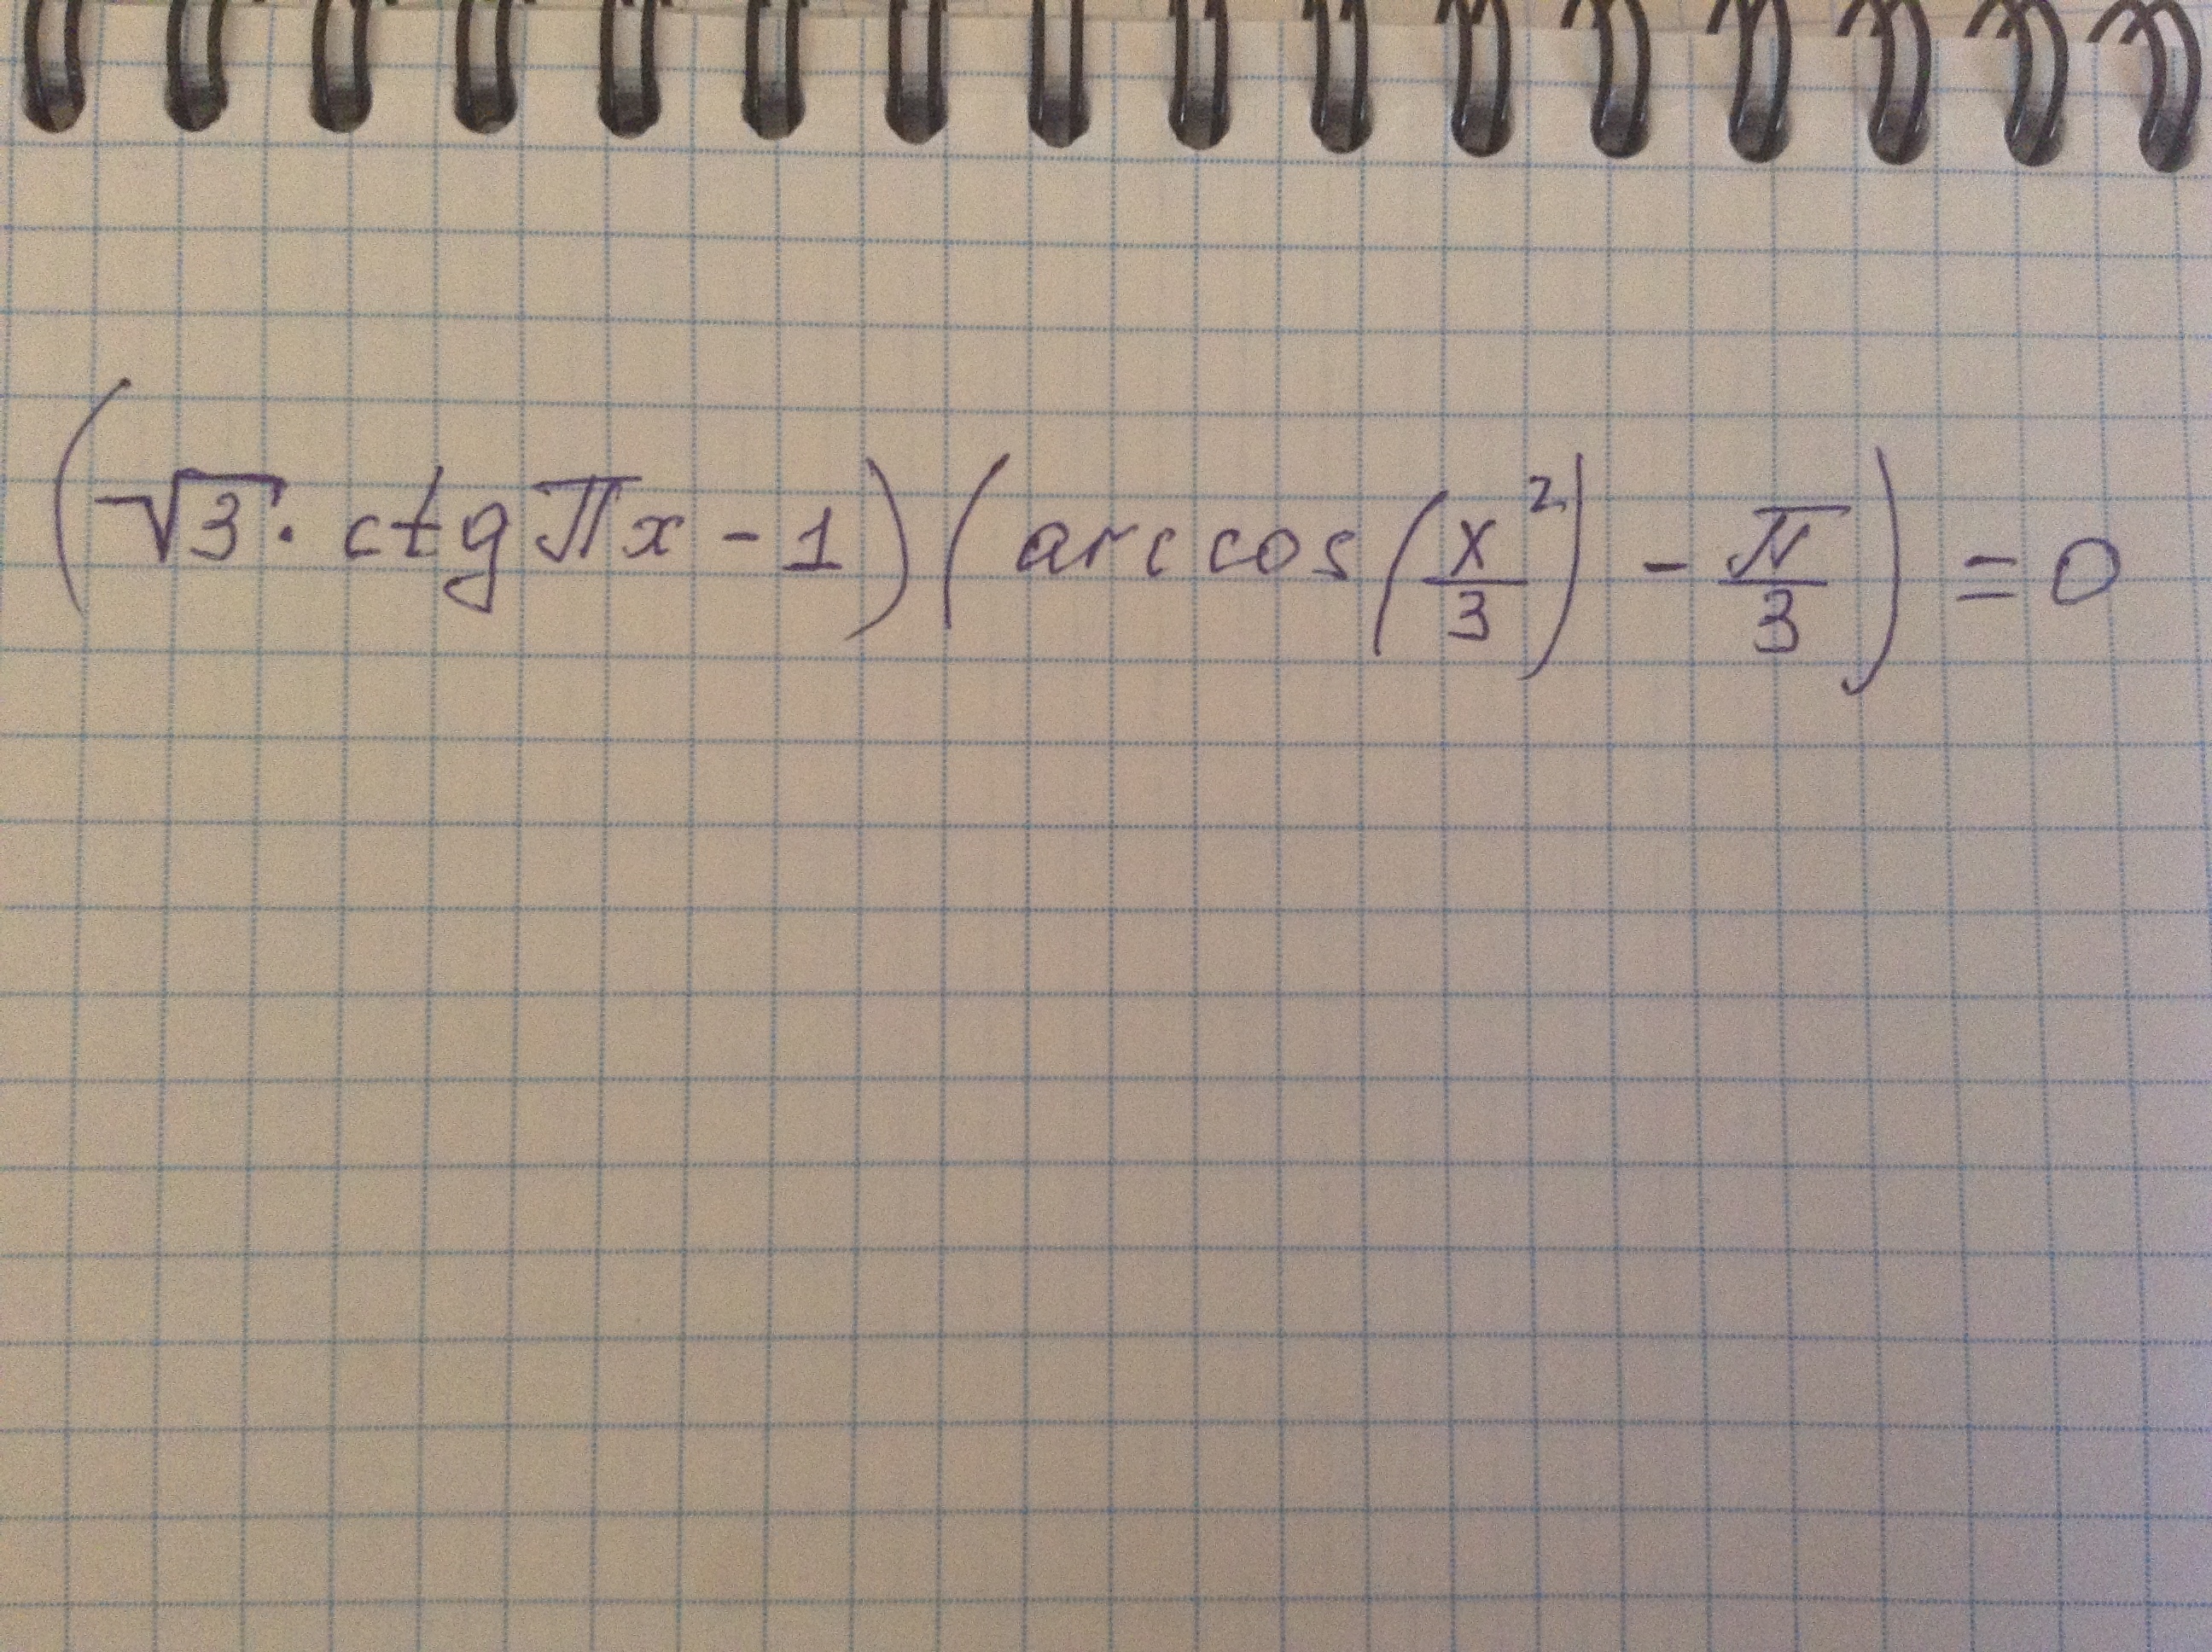 (√3 · ctg πx - 1)(arccos(x²/3) - π/3) = 0